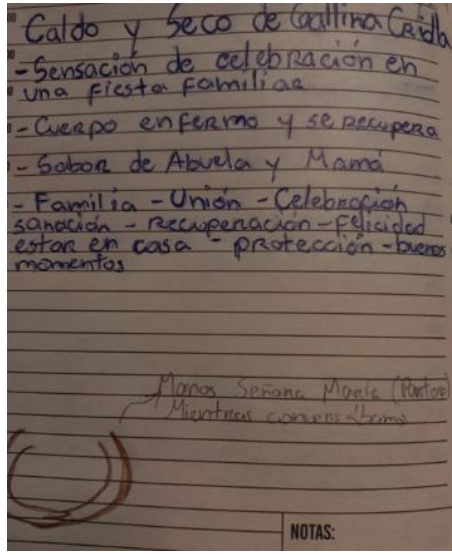 Caldo y Seco de Gallina Criolla
- Sensación de celebración en
una fiesta familiar
- Cuerpo enfermo y se recupera
- Sabor de Abuela y Mamá
- Familia - Unión - Celebración
sanación - Recuperación - felicidad
estar en casa - protección - buenos
momentos
Manos Señora
Mientras
NOTAS: